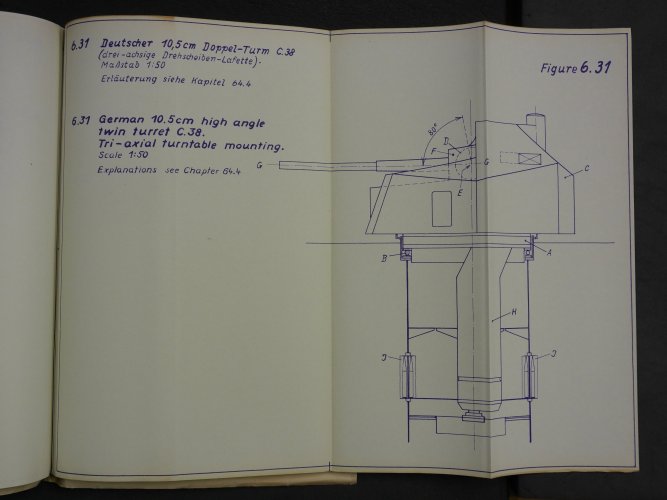 6.31 Deutscher 10,5cm Doppel-Turm C.38
(drei-achsige Drehscheiben-Lafette).
Maßstab 1:50
Erläuterung siehe Kapitel 64.4
6.31 German 10.5cm high angle
twin turret C.38.
Tri-axial turntable mounting.
Scale 1:50
Explanations see Chapter 64.4
Figure 6.31
80°
D
F
G
G
C
E
A
B
H
J
J